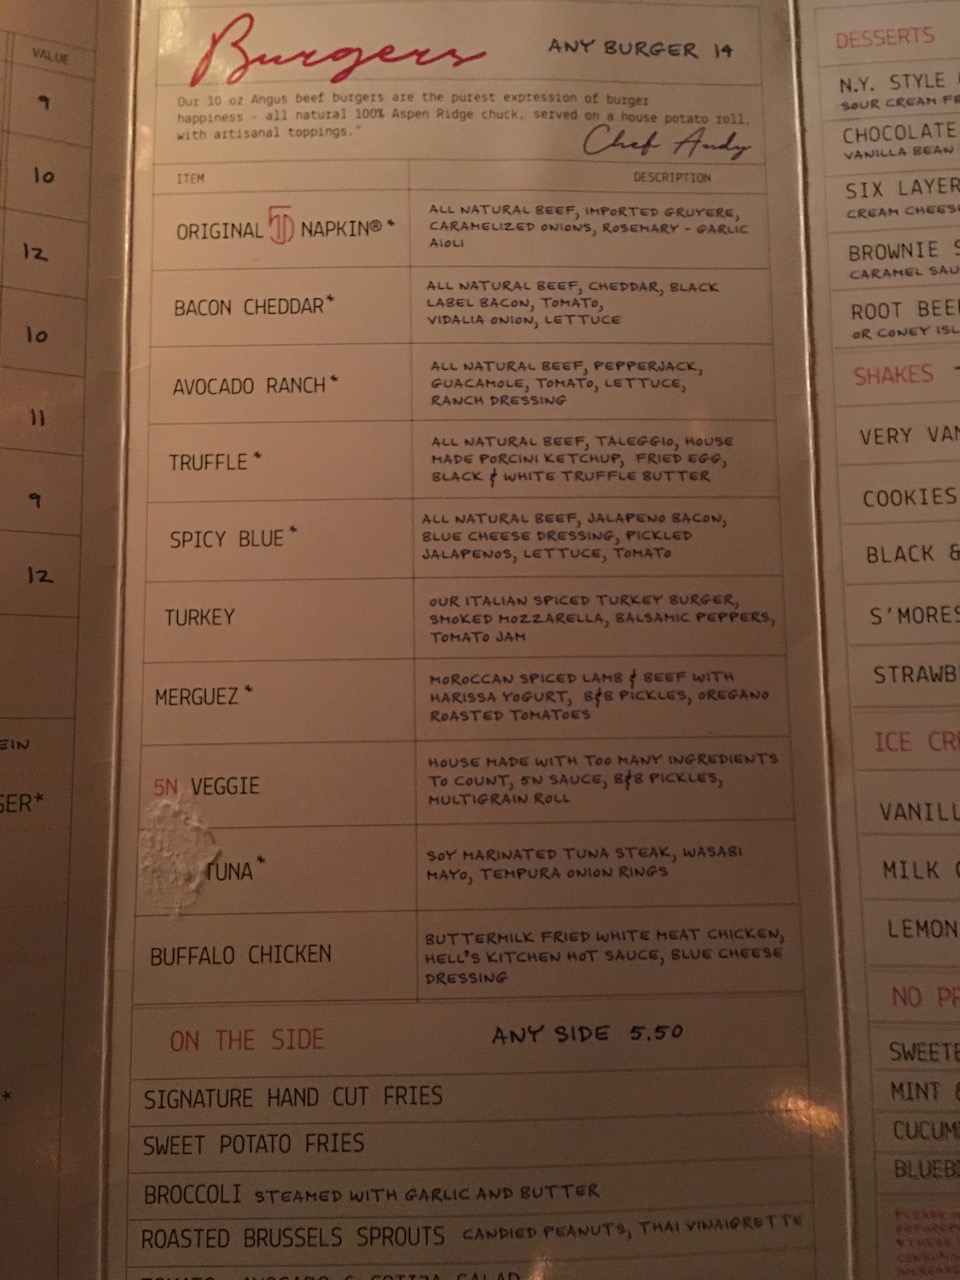 VALUE
9
10
12
10
11
9
12
EIN
GER*
*
Burgers
ANY BURGER 14
Our 10 oz Angus beef burgers are the purest expression of burger
happiness - all natural 100% Aspen Ridge chuck, served on a house potato roll,
with artisanal toppings."
Chef Andy
ITEM
DESCRIPTION
ORIGINAL 5 NAPKIN®*
ALL NATURAL BEEF, IMPORTED GRUYERE,
CARAMELIZED ONIONS, ROSEMARY - GARLIC
AIOLI
BACON CHEDDAR*
ALL NATURAL BEEF, CHEDDAR, BLACK
LABEL BACON, TOMATO,
VIDALIA ONION, LETTUCE
AVOCADO RANCH*
ALL NATURAL BEEF, PEPPERJACK,
GUACAMOLE, TOMATO, LETTUCE,
RANCH DRESSING
TRUFFLE*
ALL NATURAL BEEF, TALEGGIO, HOUSE
MADE PORCINI KETCHUP, FRIED EGG,
BLACK & WHITE TRUFFLE BUTTER
SPICY BLUE*
ALL NATURAL BEEF, JALAPENO BACON,
BLUE CHEESE DRESSING, PICKLED
JALAPENOS, LETTUCE, TOMATO
TURKEY
OUR ITALIAN SPICED TURKEY BURGER,
SMOKED MOZZARELLA, BALSAMIC PEPPERS,
TOMATO JAM
MERGUEZ*
MOROCCAN SPICED LAMB & BEEF WITH
HARISSA YOGURT, B&B PICKLES, OREGANO
ROASTED TOMATOES
5N VEGGIE
HOUSE MADE WITH TOO MANY INGREDIENTS
TO COUNT, 5N SAUCE, B&B PICKLES,
MULTIGRAIN ROLL
TUNA*
SOY MARINATED TUNA STEAK, WASABI
MAYO, TEMPURA ONION RINGS
BUFFALO CHICKEN
BUTTERMILK FRIED WHITE MEAT CHICKEN,
HELL'S KITCHEN HOT SAUCE, BLUE CHEESE
DRESSING
ON THE SIDE
ANY SIDE 5.50
SIGNATURE HAND CUT FRIES
SWEET POTATO FRIES
BROCCOLI STEAMED WITH GARLIC AND BUTTER
ROASTED BRUSSELS SPROUTS CANDIED PEANUTS, THAI VINAIGRETTE
DESSERTS
N.Y. STYLE
SOUR CREAM FR
CHOCOLATE
VANILLA BEAN
SIX LAYER
CREAM CHEESE
BROWNIE S
CARAMEL SAU
ROOT BEE
OR CONEY ISL
SHAKES
VERY VAN
COOKIES
BLACK &
S'MORES
STRAWB
ICE CR
VANILL
MILK
LEMON
NO P
SWEETE
MINT &
CUCUM
BLUEB